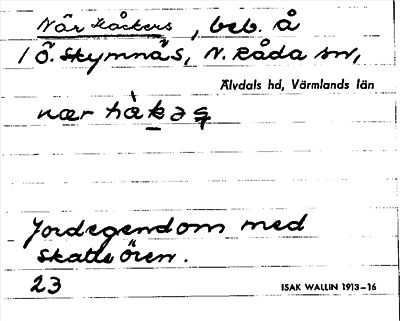 När Kåckers, beb. å
1 Ö. Skymnäs, N. Råda sn,
Älvdals hd, Värmlands län
nær håkəʂ
Jordegendom med
skatte ören.
23
ISAK WALLIN 1913–16